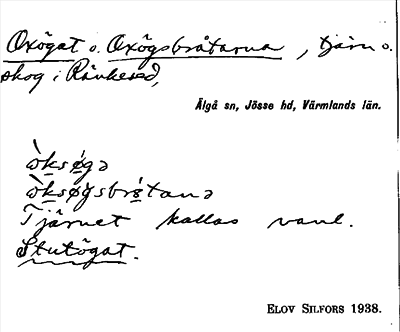 Oxögat o. Oxögsbråtarna, tjärn o.
skog i Rävkesed,
Älgå sn, Jösse hd, Värmlands län.
ò̀ksø̀gə
ò̀ksøgsbrɔ́tanə
Tjärnet kallas vanl.
Stutögat.
ELOV SILFORS 1938.